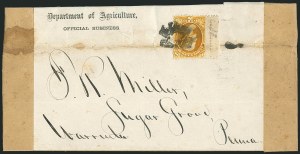 Department of Agriculture,
OFFICIAL BUSINESS.
Miller,
Sugar Grove,
Warren Co Penna